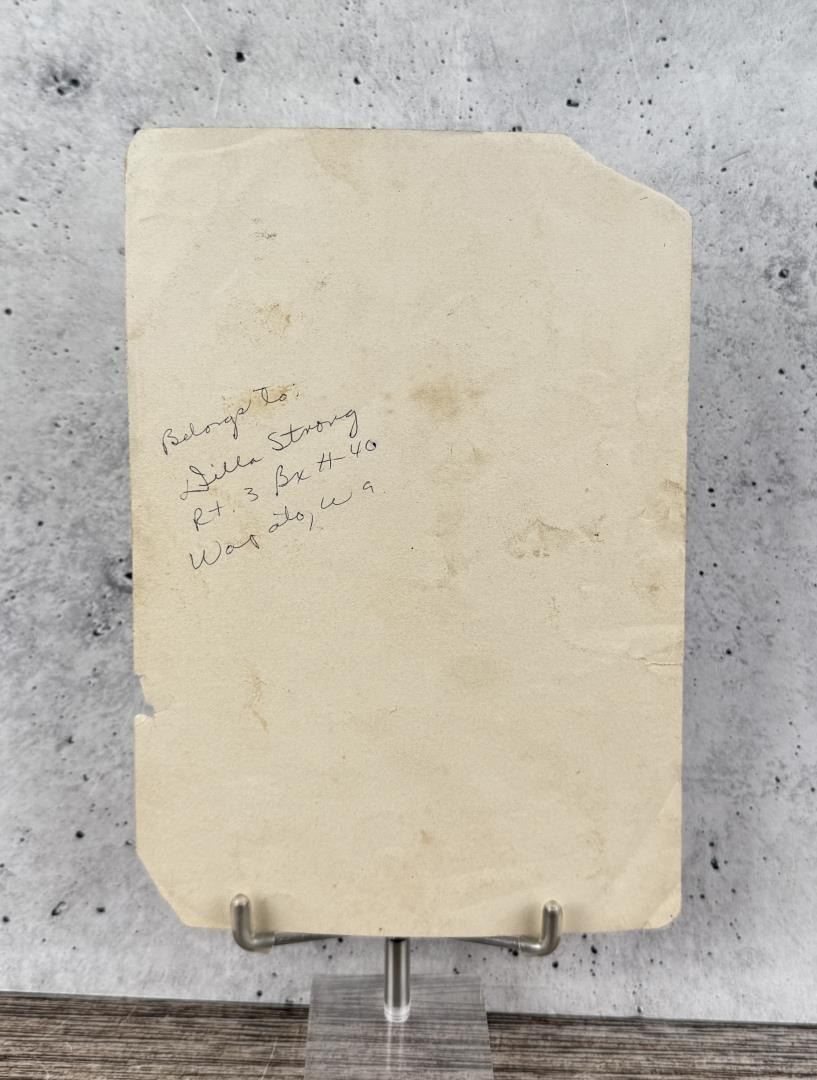 Belongs to:
Dilla Strong
Rt. 3 Bx # 40
Wapato, Wa.